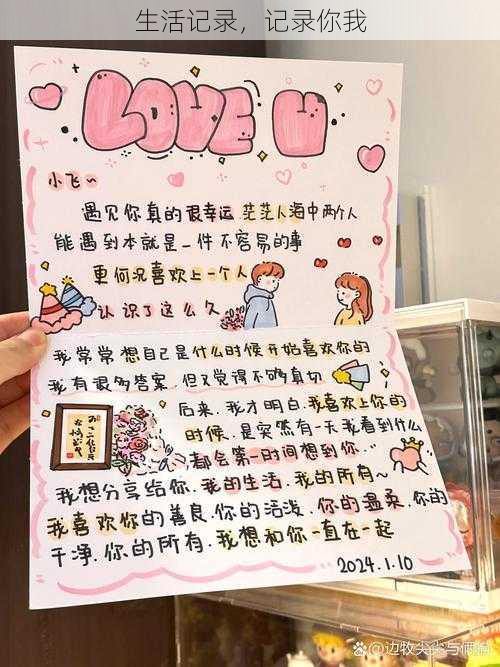 生活记录，记录你我
LOVE U
小飞~
遇见你真的很幸运.茫茫人海中两个人
能遇到本就是一件不容易的事
更何况喜欢上一个人
认识了这么久
我常常想自己是什么时候开始喜欢你的
我有很多答案.但又觉得不够真切
后来.我才明白.我喜欢上你的
时候.是突然有一天我看到什么
都会第一时间想到你...
我想分享给你.我的生活.我的所有~
我喜欢你的善良.你的活泼.你的温柔.你的
干净.你的所有.我想和你一直在一起
2024.1.10